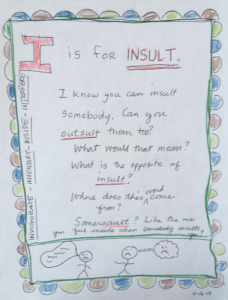 I is for INSULT.
I know you can insult
somebody. Can you
outsult them too?
What would that mean?
What is the opposite of
insult?
Where does this word come
from?
Somersault? Like the me
you feel inside when somebody insults
you
INVIGORATE - INVENTORY - INSIDE - INTERFERE